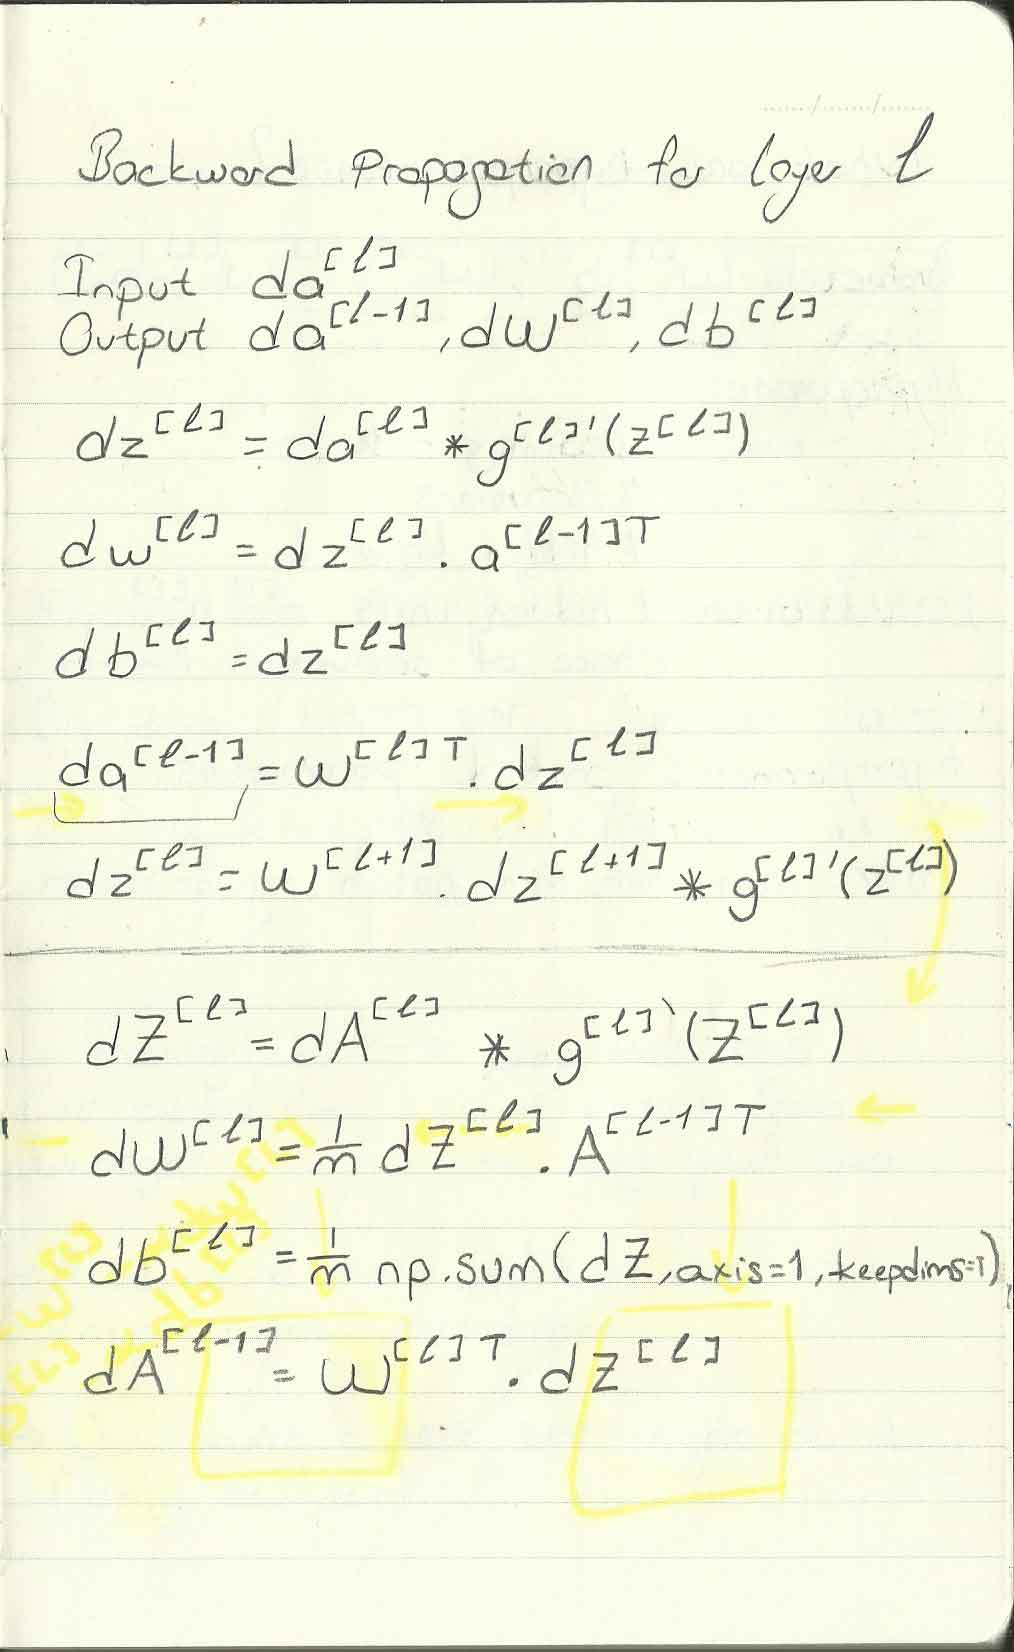 Backward Propagation for layer l
Input da^[l]
Output da^[l-1], dw^[l], db^[l]
dz^[l] = da^[l] * g^[l]'(z^[l])
dw^[l] = dz^[l] . a^[l-1]T
db^[l] = dz^[l]
da^[l-1] = w^[l]T . dz^[l]
dz^[l] = w^[l+1] . dz^[l+1] * g^[l]'(z^[l])
dZ^[l] = dA^[l] * g^[l]`(Z^[l])
dw^[l] = 1/m dZ^[l] . A^[l-1]T
db^[l] = 1/m np.sum(dZ, axis=1, keepdims=T)
dA^[l-1] = w^[l]T . dZ^[l]